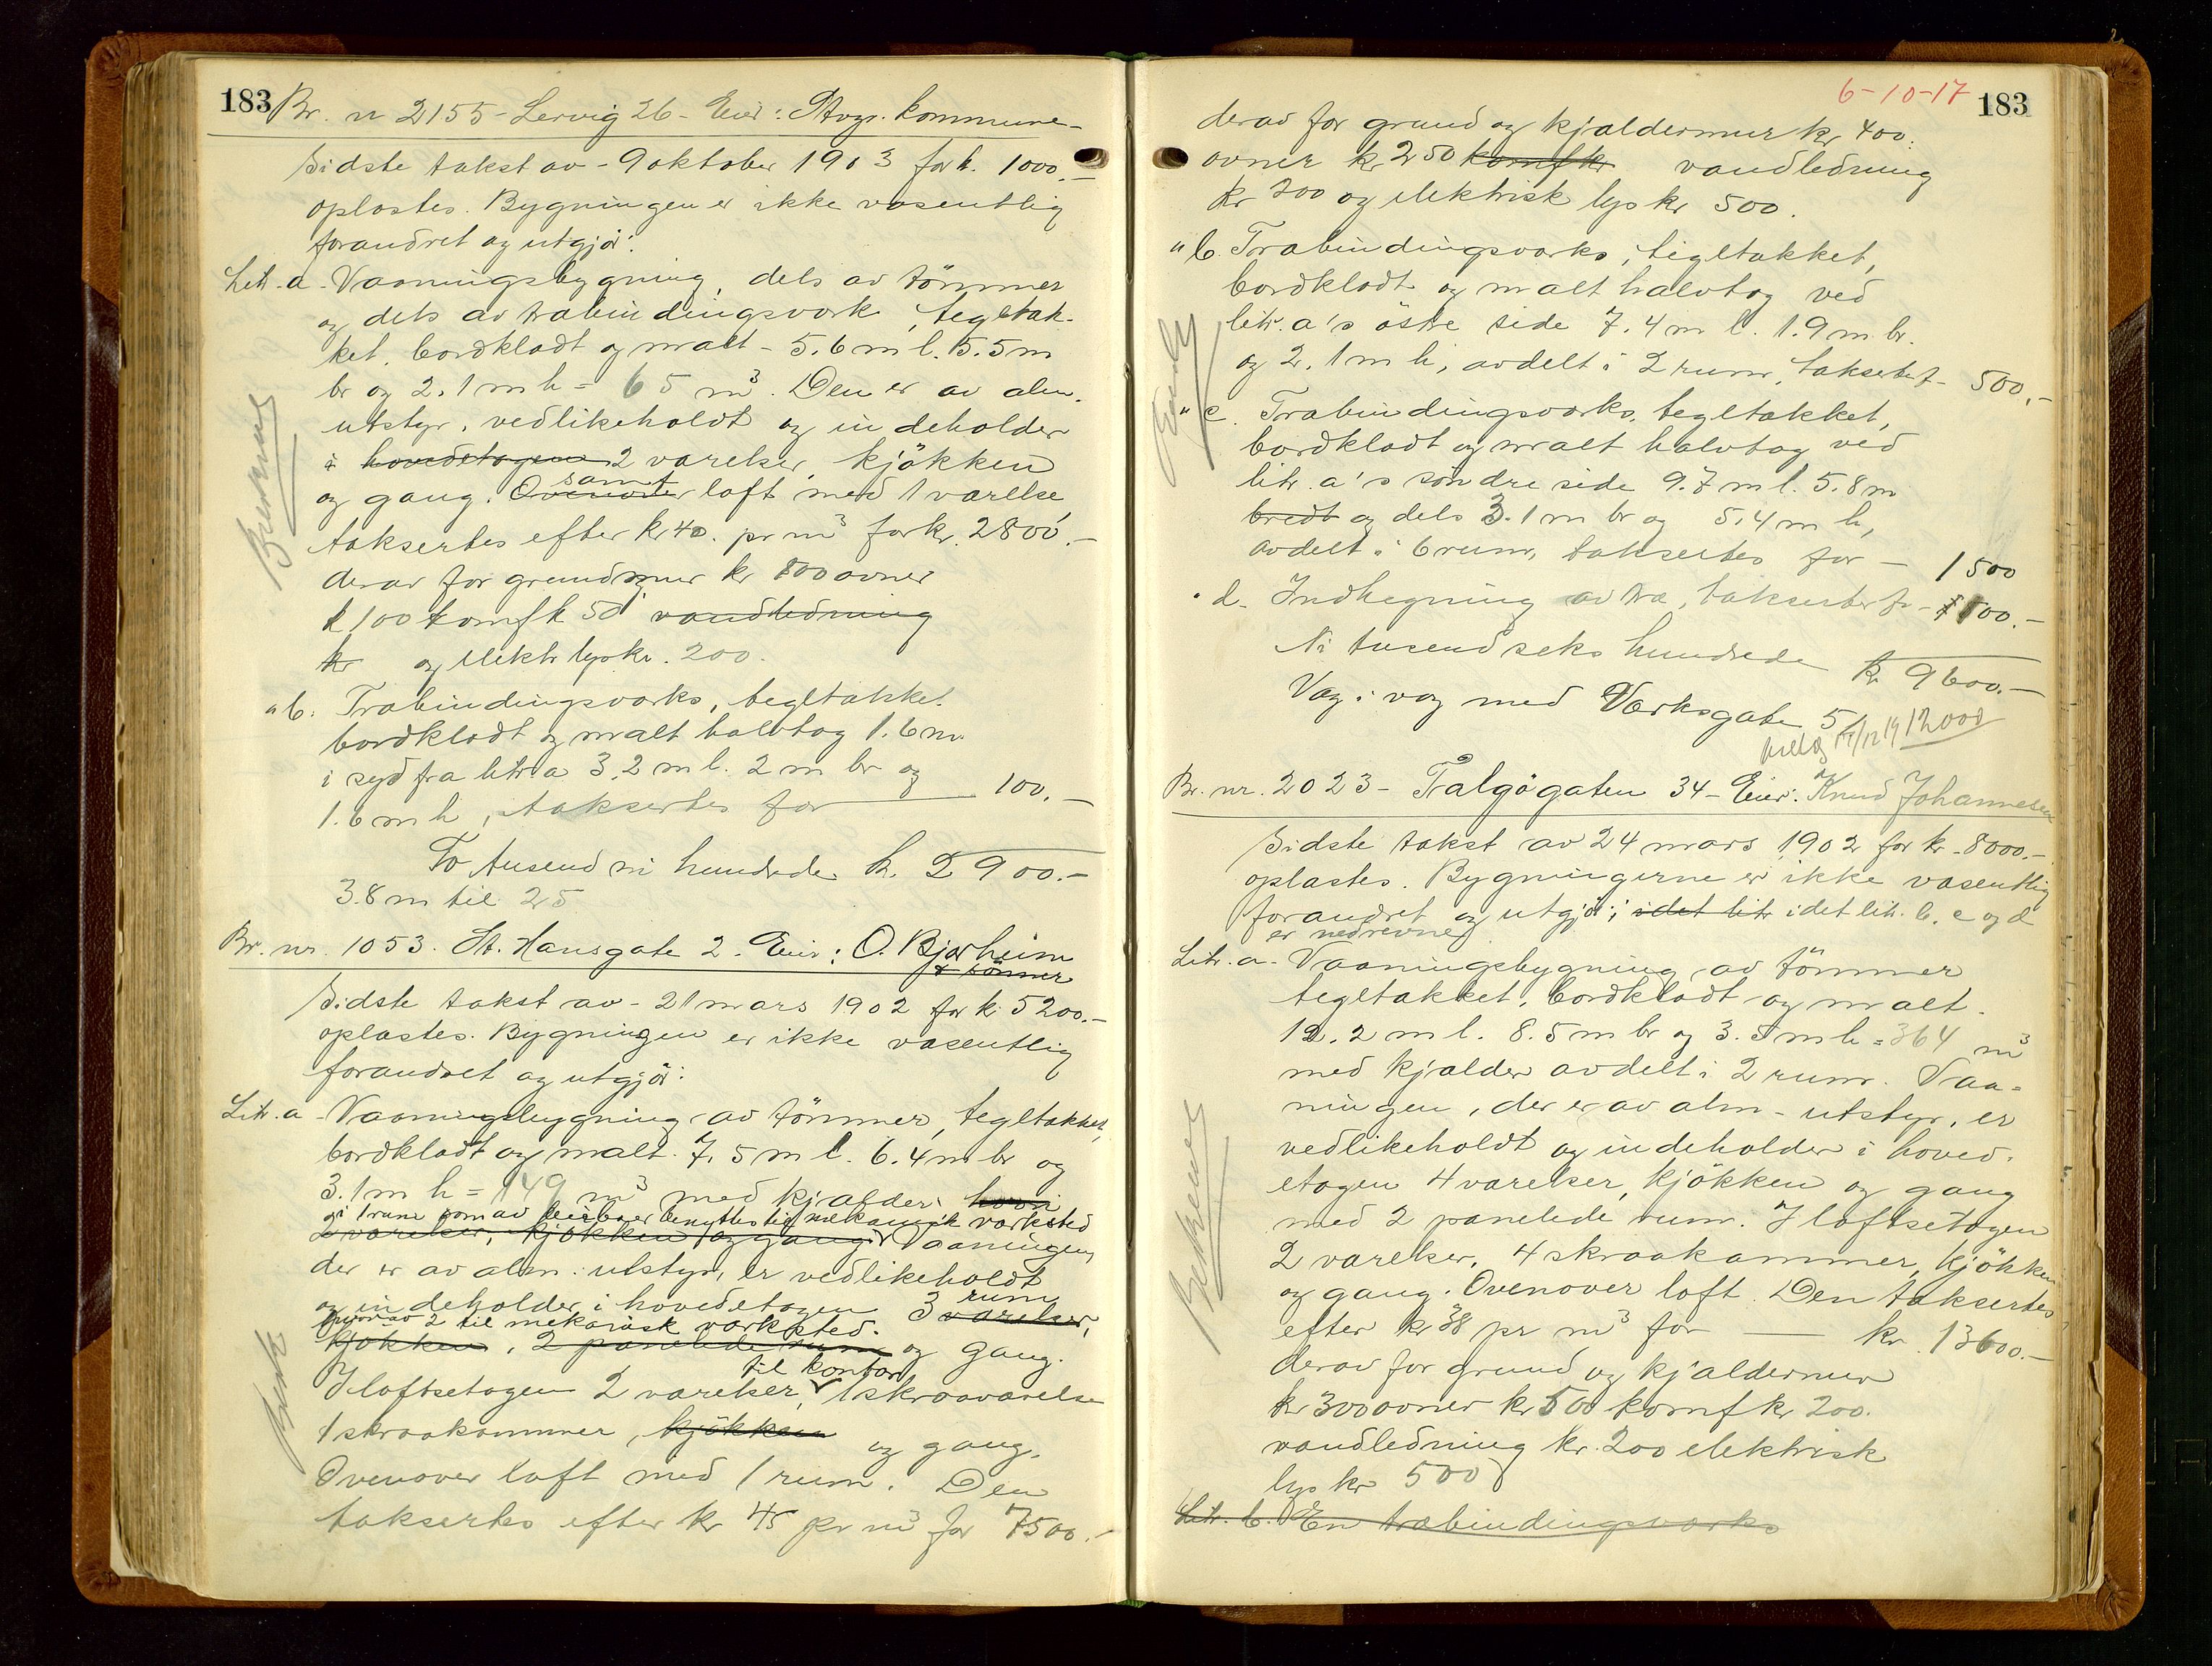 183 Br. nr 2155 - Lervig 26 - Eier: Stvgr. kommune -
Sidste takst av - 9 oktober 1903 for kr. 1000.-
oplæstes. Bygningen er ikke væsentlig
forandret og utgjör:
Litr. a - Vaaningsbygning, dels av tömmer
og dels av træbindingsverk, tegltæk-
ket, bordklædt og malt - 5.6 m l. 5.5 m
br og 2.1 m h = 65 m³. Den er av alm.
utstyr, vedlikeholdt og indeholder
i hovedetagen 2 værelser, kjökken
samt
og gang. Ovenover loft med 1 værelse,
takseres efter kr 40. pr m³ for kr. 2800.-
derav for grundmur kr 800 ovner
k 100 komf k 50 vandledning
kr og elektr lys kr. 200.
" b. Træbindingsverks, tegltækket
bordklædt og malt halvtag 1.6 m
i syd fra litr a 3.2 m l. 2 m br og
1.6 m h, takseres for 100.-
To tusend ni hundrede kr. 2900.-
3.8 m til 25
Br. nr. 1053. St. Hansgate 2. Eier: O. Bjorheim
& sönner
Sidste takst av - 21 mars 1902 for k. 5200.-
oplæstes. Bygningen er ikke væsentlig
forandret og utgjör:
Litr. a - Vaaningsbygning av tömmer, tegltækket,
bordklædt og malt. 7.5 m l. 6.4 m br og
3.1 m h = 149 m³ med kjælder
og 1 rum som av eieren benyttes til mekanisk verksted
2 værelser, kjökken og gang. Vaaningen,
der er av alm. utstyr, er vedlikeholdt
rum
og indeholder i hovedetagen 3 værelser,
hvorav 2 til mekanisk verksted.
kjökken, 2 panelede rum og gang.
til kontor
I loftsetagen 2 værelser, 1 skraaværelse
1 skraakammer, kjökken og gang.
Ovenover loft med 1 rum. Den
takseres efter kr 45 pr m³ for 7500.-
6-10-17 183
derav for grund og kjældermur kr 400:
ovner kr 250 komf kr vandledning
kr 200 og elektrisk lys kr 500.
" b. Træbindingsverks, tegltækket,
bordklædt og malt halvtag ved
litr. a's östre side 7.4 m l. 1.9 m br.
og 2.1 m h, avdelt i 2 rum, takseres f - 500.-
" c. Træbindingsverks, tegltækket,
bordklædt og malt halvtag ved
litr. a's söndre side 9.7 m l. 5.8 m
bredt og dels 3.1 m br og 5.4 m h,
avdelt i 6 rum, takseres for - 1500
" d. Indhegning av træ, takseres for - 100.-
Ni tusend seks hundrede kr 9600.-
Væg i væg med Verksgate 5
tillæg 17/12 19 12000
Br. nr. 2023 - Talgögaten 34 - Eier: Knud Johannesen
Sidste takst av 24 mars 1902 for kr. 8000.-
oplæstes. Bygningerne er ikke væsentlig
forandret og utgjör; idet litr idet litr. b. c og d
er nedrevne
Litr. a - Vaaningsbygning av tömmer
tegltækket, bordklædt og malt.
12.2 m l. 8.5 m br og 3.5 m h = 364 m³
med kjælder avdelt i 2 rum. Vaa-
ningen, der er av alm - utstyr, er
vedlikeholdt og indeholder i hoved-
etagen 4 værelser, kjökken og gang
med 2 panelede rum. I loftsetagen
2 værelser, 4 skraakammer, kjökken
og gang. Ovenover loft. Den takseres
efter kr 38 pr m³ for - kr. 13600.-
derav for grund og kjældermur
kr 300 ovner kr 500 komf kr 200.
vandledning kr. 200 elektrisk
lys kr 500
Litr. b. En træbindingsverks